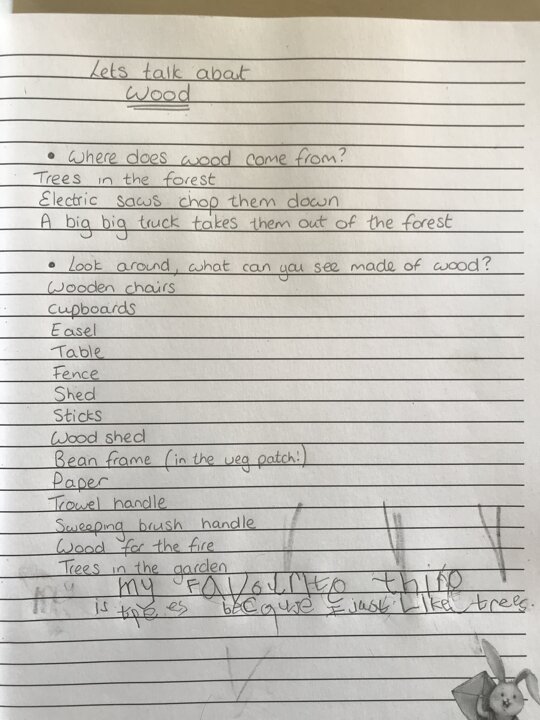 Lets talk about
Wood
• Where does wood come from?
Trees in the forest
Electric saws chop them down
A big big truck takes them out of the forest
• Look around, what can you see made of wood?
Wooden chairs
Cupboards
Easel
Table
Fence
Shed
Sticks
Wood shed
Bean frame (in the veg patch!)
Paper
Trowel handle
Sweeping brush handle
Wood for the fire
Trees in the garden
my
is because I just Like trees.